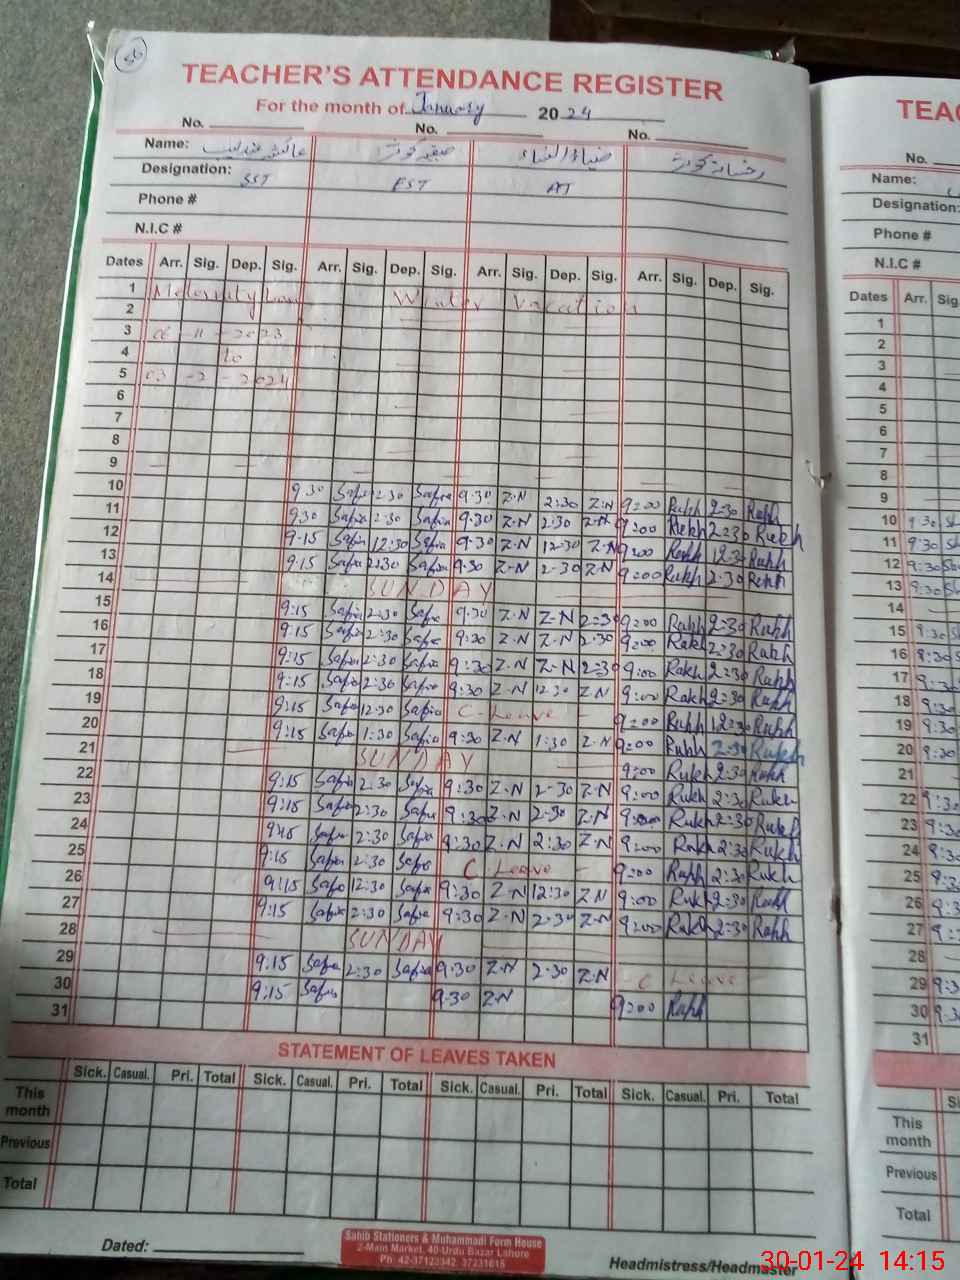 56
TEACHER'S ATTENDANCE REGISTER
For the month of January 2024
No. No. No.
Name: عائشہ عندلیب صفیہ کوثر ضیاء النساء رخسانہ کوثر
Designation: SST EST AT
Phone #
N.I.C #
Dates Arr. Sig. Dep. Sig. Arr. Sig. Dep. Sig. Arr. Sig. Dep. Sig. Arr. Sig. Dep. Sig.
1 Maternity Winter Vacation
2
3 06-11-2023
4 to
5 03-2-2024
6
7
8
9
10 9:30 Safia 2:30 Safia 9:30 Z.N 2:30 Z.N 9:00 Rukh 2:30 Rukh
11 9:30 Safia 2:30 Safia 9:30 Z.N 2:30 Z.N 9:00 Rukh 2:30 Rukh
12 9:15 Safia 12:30 Safia 9:30 Z.N 12:30 Z.N 9:00 Rukh 12:30 Rukh
13 9:15 Safia 2:30 Safia 9:30 Z.N 2:30 Z.N 9:00 Rukh 2:30 Rukh
14 SUNDAY
15 9:15 Safia 2:30 Safia 9:30 Z.N Z.N 2:30 9:00 Rukh 2:30 Rukh
16 9:15 Safia 2:30 Safia 9:30 Z.N Z.N 2:30 9:00 Rukh 2:30 Rukh
17 9:15 Safia 2:30 Safia 9:30 Z.N Z.N 2:30 9:00 Rukh 2:30 Rukh
18 9:15 Safia 2:30 Safia 9:30 Z.N 12:30 Z.N 9:00 Rukh 2:30 Rukh
19 9:15 Safia 12:30 Safia C-Leave 9:00 Rukh 12:30 Rukh
20 9:15 Safia 1:30 Safia 9:30 Z.N 1:30 Z.N 9:00 Rukh 2:30 Rukh
21 SUNDAY 9:00 Rukh 2:30 Rukh
22 9:15 Safia 2:30 Safia 9:30 Z.N 2:30 Z.N 9:00 Rukh 2:30 Rukh
23 9:15 Safia 2:30 Safia 9:30 Z.N 2:30 Z.N 9:00 Rukh 2:30 Rukh
24 9:15 Safia 2:30 Safia 9:30 Z.N 2:30 Z.N 9:00 Rukh 2:30 Rukh
25 9:15 Safia 2:30 Safia C Leave 9:00 Rukh 2:30 Rukh
26 9:15 Safia 12:30 Safia 9:30 Z.N 12:30 Z.N 9:00 Rukh 2:30 Rukh
27 9:15 Safia 2:30 Safia 9:30 Z.N 2:30 Z.N 9:00 Rukh 2:30 Rukh
28 SUNDAY
29 9:15 Safia 2:30 Safia 9:30 Z.N 2:30 Z.N C Leave
30 9:15 Safia 9:30 Z.N 9:00 Rukh
31
STATEMENT OF LEAVES TAKEN
Sick. Casual. Pri. Total Sick. Casual. Pri. Total Sick. Casual. Pri. Total Sick. Casual. Pri. Total
This month
Previous
Total
Dated:
Sahib Stationers & Muhammadi Form House
2-Main Market, 40-Urdu Bazar Lahore
Ph: 42-37123342, 37231615
Headmistress/Headmaster
TEAC
No.
Name:
Designation:
Phone #
N.I.C #
Dates Arr. Sig
1
2
3
4
5
6
7
8
9
10 9:30
11 9:30
12 9:30
13 9:30
14
15 9:30
16 9:30
17 9:30
18 9:30
19 9:30
20 9:30
21
22 9:30
23 9:30
24 9:30
25 9:30
26 9:3
27 9:
28
29 9:3
30 9:3
31
This month
Previous
Total
30-01-24 14:15